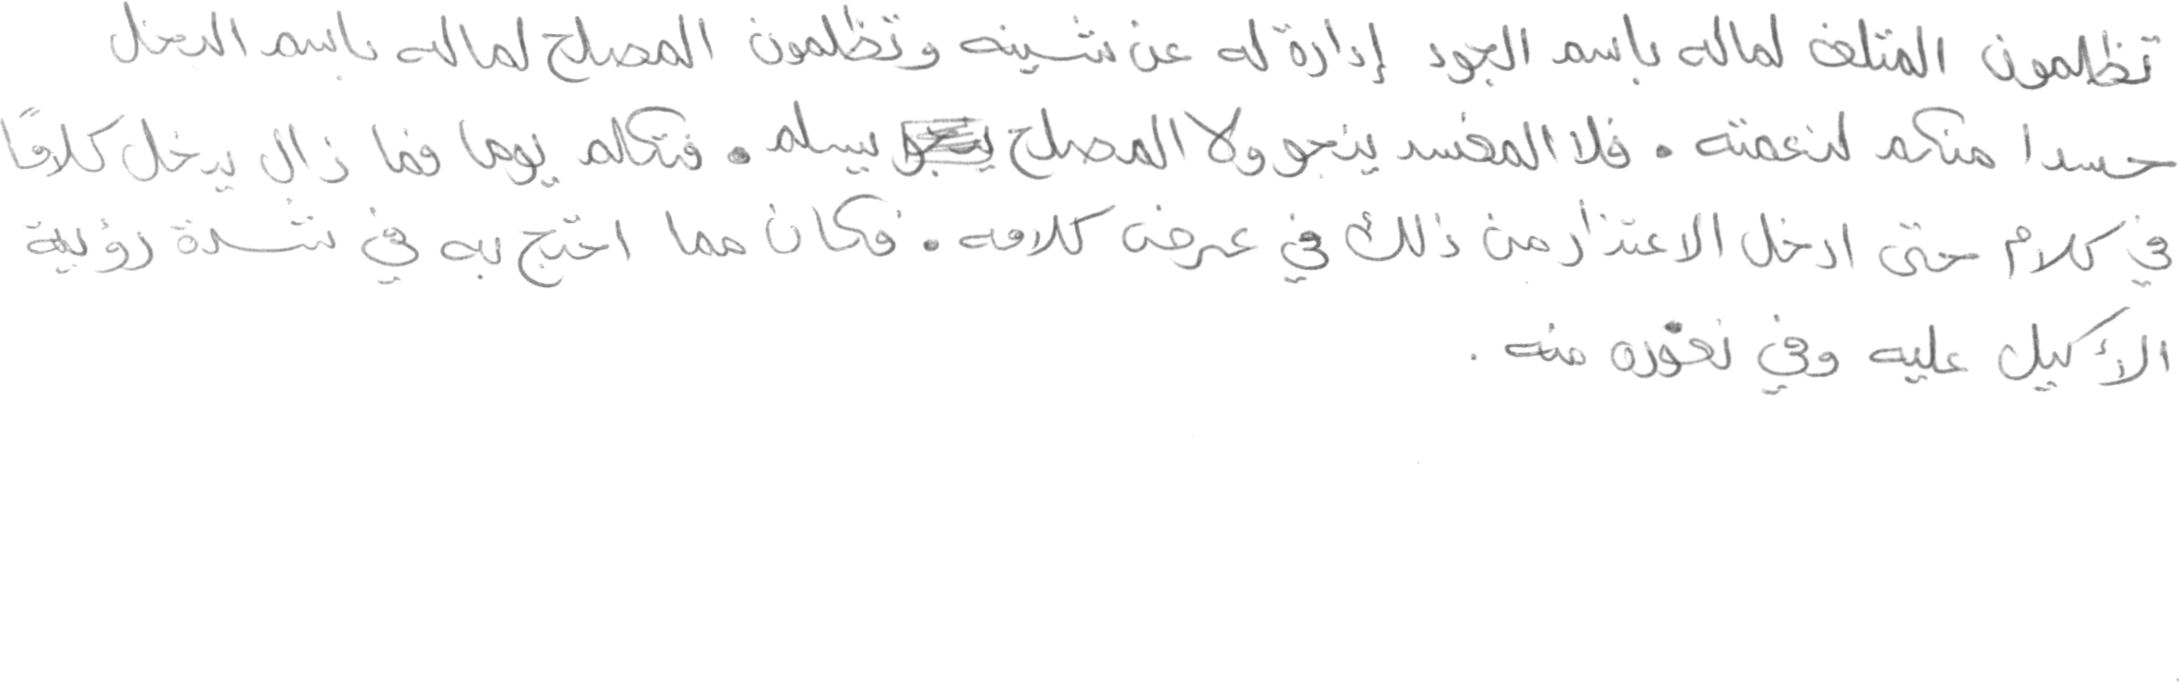 تظلمون المتلف لماله باسم الجود إدارة له عن شينه وتظلمون المصلح لماله باسم البخل
حسدا منكم لنعمته . فلا المفسد ينجو ولا المصلح يسلم . فتكلم يوما فما زال يدخل كلامًا
في كلام حتى ادخل الاعتذار من ذلك في عرض كلامه . فكان مما احتج به في شدة رؤية
الأكيل عليه وفي نفوره منه .